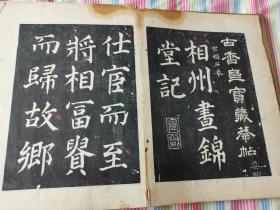 古香斋寶藏蔡帖
相州晝錦
堂記
仕宦而至
將相富貴
而歸故鄉